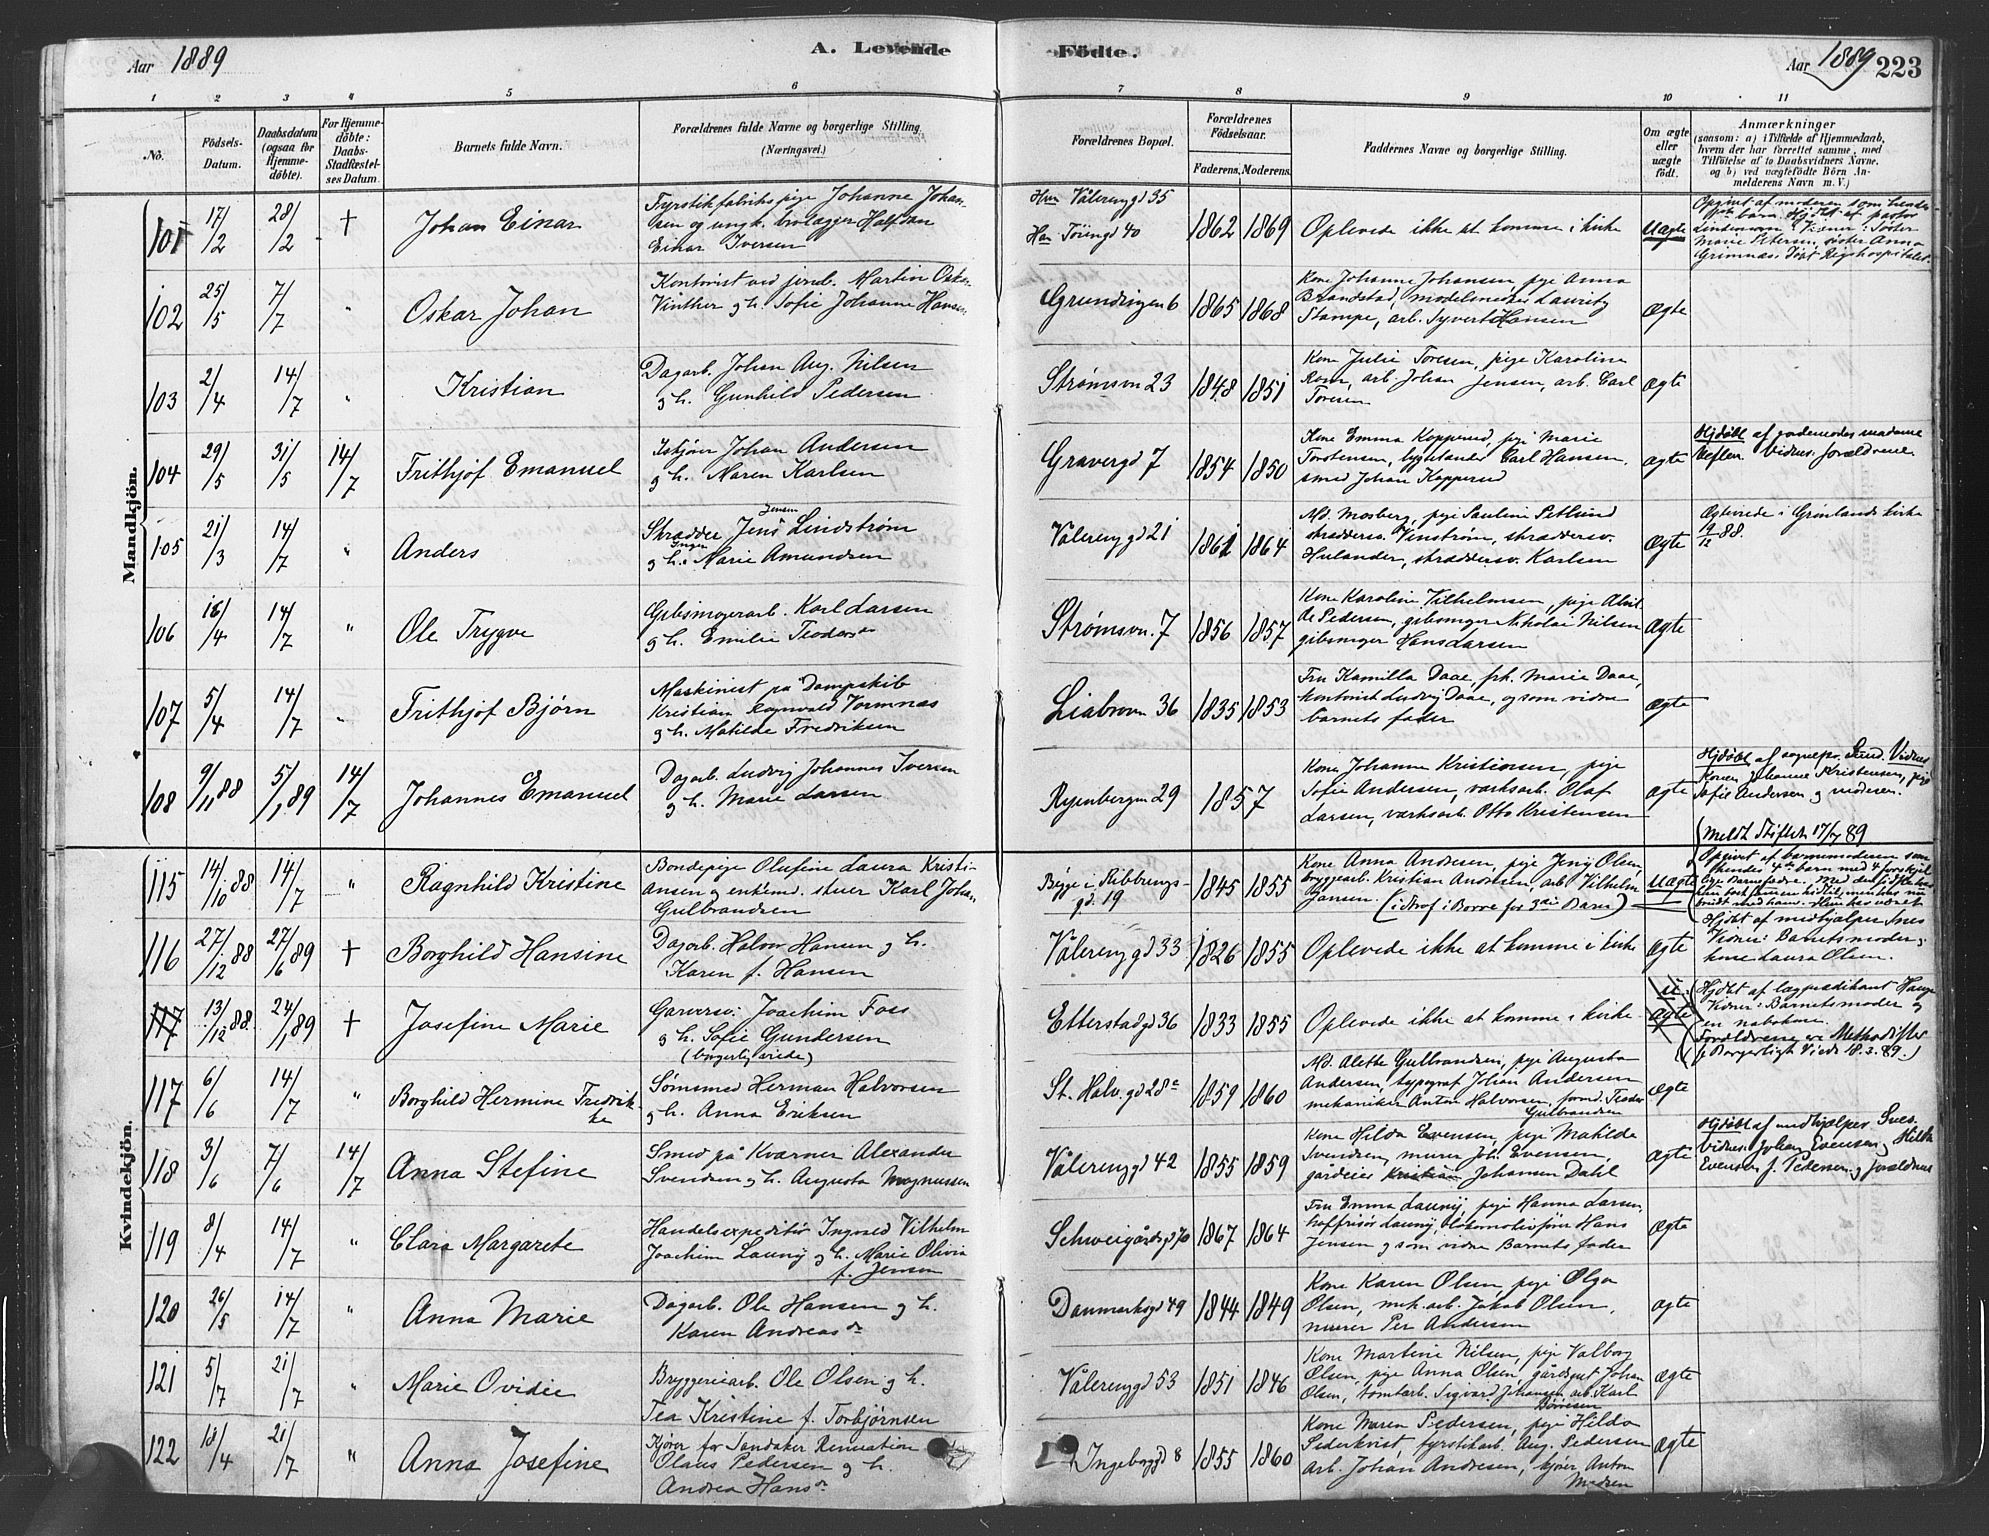 Aar 1889
A. Levende
Födte.
Aar 1889
223
1 2 3 4 5 6 7 8 9 10 11
No.
Födsels-Datum.
Daabsdatum (ogsaa for Hjemmedöbte).
For Hjemmedöbte: Daabs-Stadfæstelses Datum.
Barnets fulde Navn.
Forældrenes fulde Navne og borgerlige Stilling.
(Næringsvei.)
Forældrenes Bopæl.
Forældrenes Födselsaar.
Faderens. Moderens.
Faddernes Navne og borgerlige Stilling.
Om ægte eller uægte födt.
Anmærkninger
(saasom: a) i Tilfælde af Hjemmedaab,
hvem der har forrettet samme, med
Tilfötelse af to Daabsvidners Navne,
og b) ved uægtefödte Börn Anmelderens Navn m. V.)
Mandkjön.
101 17/2 28/2 † Johan Einar
Fyrstikfabrikspige Johanne Johansen og ungk. brolægger Halfdan
Einar Iversen
Hun Vålerengd 35
Han Töiengd 40
1862 1869 Oplevede ikke at komme i kirke uægte
Opgivet af moderen som hendes
102 25/5 7/7 " Oskar Johan
Kontorist ved jernb. Martin Oskar
Vinther og h. Sofie Johanne Hansen
Grundingen 6 1865 1868
Kone Johanne Johansen, pige Anna
Brandstad, modelsnedker Lauritz
Stampe, arb. Syvert Hansen
Ægte
103 2/4 14/7 " Kristian
Dagarb. Johan Aug. Nilsen
og h. Gunhild Pedersen
Strømsvn 23 1848 1851
Kone Julie Toresen, pige Karoline
Rom, arb. Johan Jensen, arb. Carl
Toresen
ægte
104 29/5 31/5 14/7 Frithjof Emanuel
Johan Andersen
og h. Maren Karlsen
Gravergd 7 1854 1850
Kone Emma Kopperud, pige Marie
Torstensen, Carl Hansen,
smed Johan Kopperud
ægte
Hjdöbt af jordemodermadame
vidner: forældrene
105 21/3 14/7 " Anders
Skrædder Jens Jensen Lindström
og h. Inger Marie Amundsen
Vålerengd 21 1861 1864
Md. Mosberg, pige Pauline Petlund
skræddersv. Vinström, skræddersv.
Hulander, skræddersv. Karlsen
Ægte
Ægteviede i Grönlands kirke
19/12 88.
106 16/4 14/7 " Ole Trygve
Gibsmagerarb. Karl Larsen
og h. Emilie Teodorsdr
Strømsvn. 7 1856 1857
Kone Karoline Vilhelmsen, pige Alvilde Pedersen, gibsmager Nikolai Nilsen
gibsmager Hans Larsen
Ægte
107 5/4 14/7 " Frithjof Bjørn
Maskinist på Dampskib
Kristian Ragnvald Vormnæs
og h. Matilde Fredriksen
Liabroven 36 1835 1853
Fru Kamilla Daae, frk. Marie Daae,
kontorist Ludvig Daae, og som vidne
barnets fader
ægte
108 9/11 88 5/1 89 14/7 Johannes Emanuel
Dagarb. Ludvig Johannes Iversen
og h. Marie Larsen
Ryenbergen 29 1857
Kone Johanne Kristiansen, pige
Sofie Andersen, værksarb. Olaf
Larsen, værksarb. Otto Kristensen
ægte
Hjdöbt af sognepr. Sund. Vidner
Konen Johanne Kristensen, pige
Sofie Andersen og moderen.
(meldt Stiftet 17/7 89
Kvindekjön.
115 14/10 88 14/7 " Ragnhild Kristine
Bondepige Olufine Laura Kristiansen og enkemd. stuer Karl Johan
Gulbrandsen
Begge i Ribbrengs-
gd. 19
1845 1855
Kone Anna Andresen, pige Jeny Olsen,
bryggearb. Kristian Andersen, arb Vilhelm
Jansen.
uægte
Opgivet af barnemoderen som
116 27/12 88 27/6 89 † Borghild Hansine
Dagarb. Halvor Hansen og h.
Karen f. Hansen
Vålerengd 33 1826 1855 Oplevede ikke at komme i kirke ægte
Hjdbt af medhjælper Snes
Vidner: Barnets moder og
kone Laura Olsen.
117 13/12 88 24/1 89 † Josefine Marie
Garversv. Joachim Foss
og h. Sofie Gundersen
(borgerlig viede)
Etterstadgd 36 1833 1855 Oplevede ikke at komme i kirke.
u. ægte
Hjdbt af lægprædikant Hauge
Vidner: Barnets moder og
en nabokone.
Forældrene er Methodister
Borgerligt Viede 18.3.89.)
117 6/6 14/7 " Borghild Hermine Fredrikke
Sömsmed Herman Halvorsen
og h. Anna Eriksen
St. Halv. gd 28a 1859 1860
Md. Alette Gulbrandsen, pige Augusta
Andersen, typograf Johan Andersen
mekaniker Anton Halvorsen, formd. Teodor
Gulbrandsen
Ægte
118 3/6 7/6 14/7 Anna Stefine
Smed på Kværner Alexander
Svendsen og h. Augusta Magnussen
Vålerengd 42 1855 1859
Kone Hilda Evensen, pige Matilde
Svendsen, murer Joh. Evensen,
gårdeier Kristian Johansen Dahl
ægte
Hjdöbt af medhjælper Snes.
Vidner: Johan Evensen og Hilda
Evensen f. Pedersen og forældrene
119 8/4 14/7 " Clara Margarete
Handelsexpeditör Ingvald Vilhelm
Joachim Launy og h. Marie Olivia
f. Jensen
Schweigårdsgd 70 1867 1864
Fru Emma Launy, pige Hanna Larsen,
hoffrisör Launy, lokomotivförer Hans
Jensen og som vidne Barnets fader
Ægte
120 26/5 14/7 " Anna Marie
Dagarb. Ole Hansen og h.
Karen Andreasdr
Danmarksgd 49 1844 1849
Kone Karen Olsen, pige Olga
Olsen, mek. arb. Jakob Olsen,
murer Per Andersen
ægte
121 5/7 21/7 " Marie Ovidie
Bryggeriearb. Ole Olsen og h.
Tea Kristine f. Torbjørnsen
Vålerengd 53 1851 1846
Kone Martine Nilsen, pige Valborg
Olsen, pige Anna Olsen, gårdsgut Johan
Olsen, tomtarb. Sigvard Johansen, arb. Karl
Ægte
122 18/4 21/7 " Anna Josefine
Kjører for Sandaker Renovation
Olaus Pedersen og h.
Andrea Hansdr
Ingeborggd 8 1855 1860
Kone Maren Pedersen, pige Hilda
Sederkvist, fyrstikarb. Aug. Pedersen
arb. Johan Andresen, kjører Anton
Madsen
Ægte